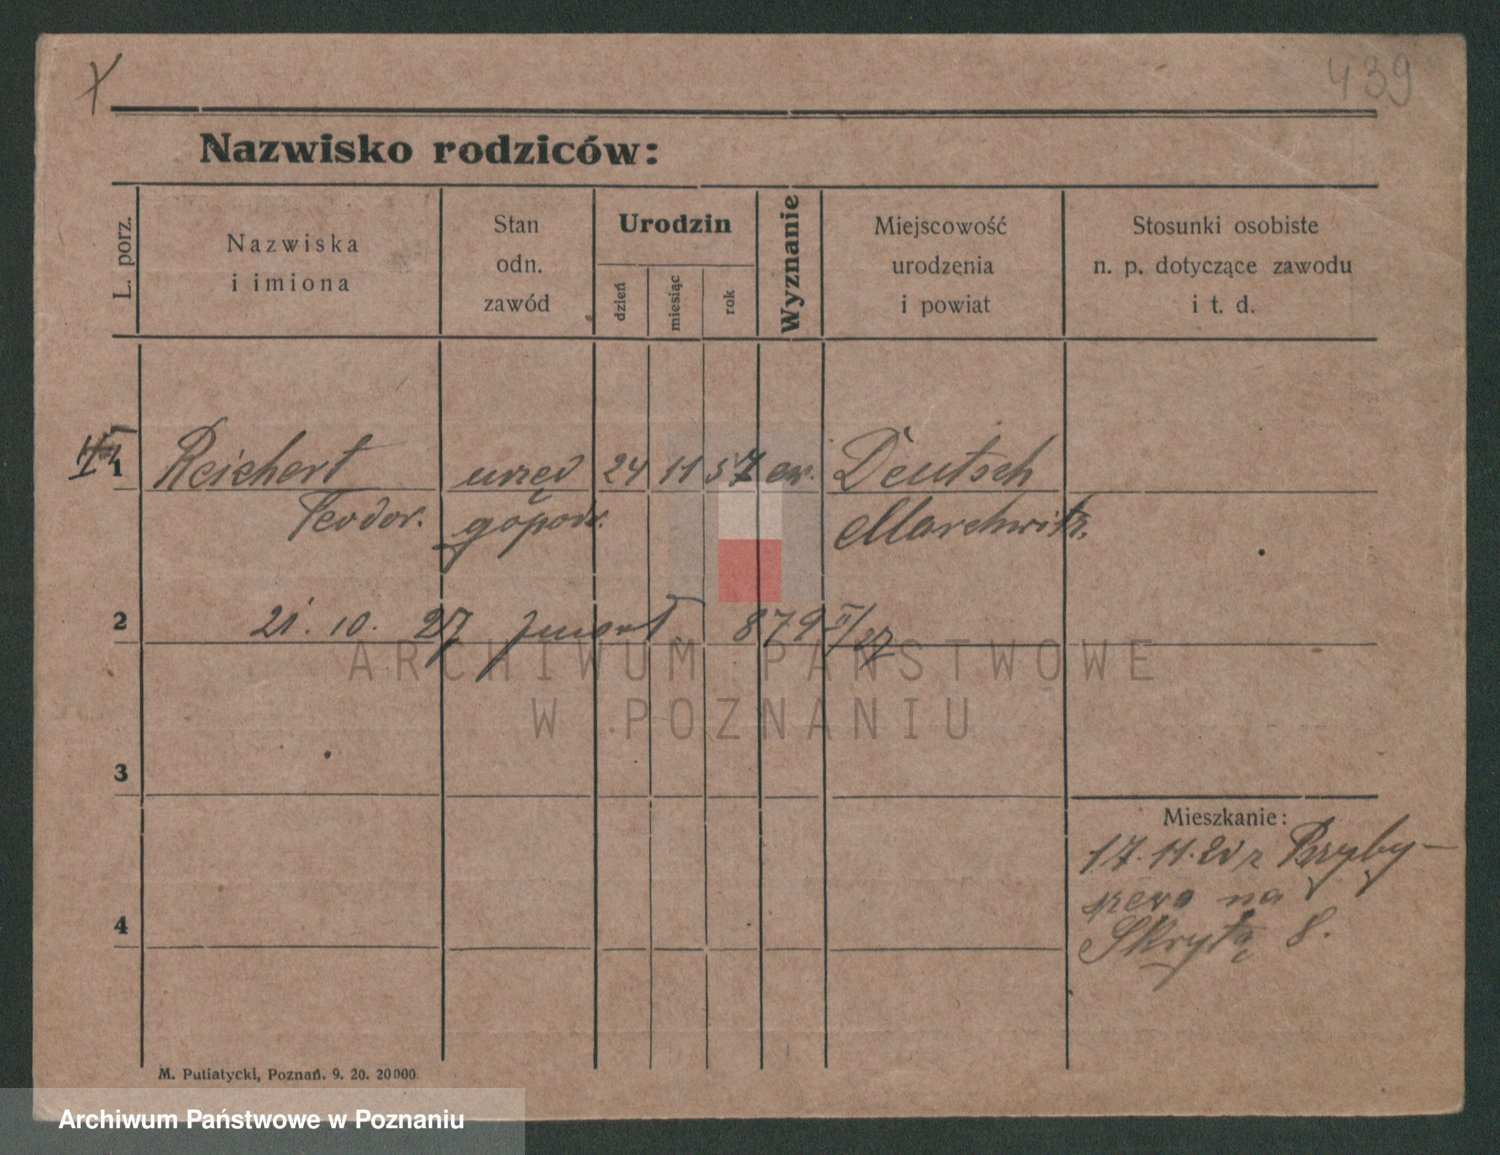 439
Nazwisko rodziców:
L. porz.
Nazwiska
i imiona
Stan
odn.
zawód
Urodzin
dzień
miesiąc
rok
Wyznanie
Miejscowość
urodzenia
i powiat
Stosunki osobiste
n. p. dotyczące zawodu
i t. d.
1 Reichert urzęd 24 11 57 ew. Deutsch
Teodor. gospod. Marchwitz.
2 21. 10. 27 zmarł 879 II/27
3
Mieszkanie:
17. 11. 21 z Przyby-
szewa na
4
Skrytą 8.
M. Putiatycki, Poznań. 9. 20. 20000.
ARCHIWUM PAŃSTWOWE
W POZNANIU
Archiwum Państwowe w Poznaniu